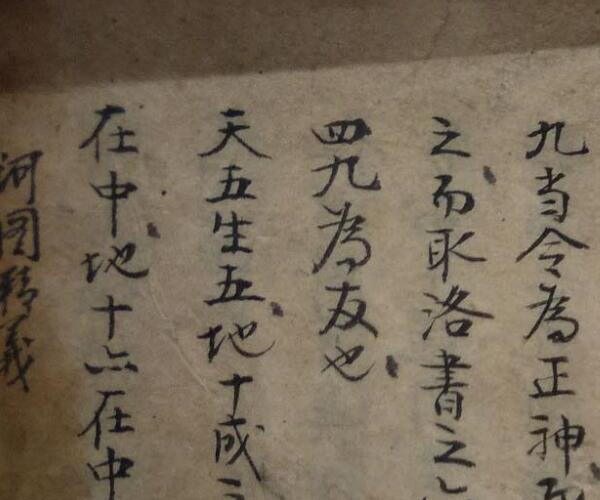 九当令為正神
之而取洛書之
四九為友也
天五生五地十成之
在中地十六在中
河图精義